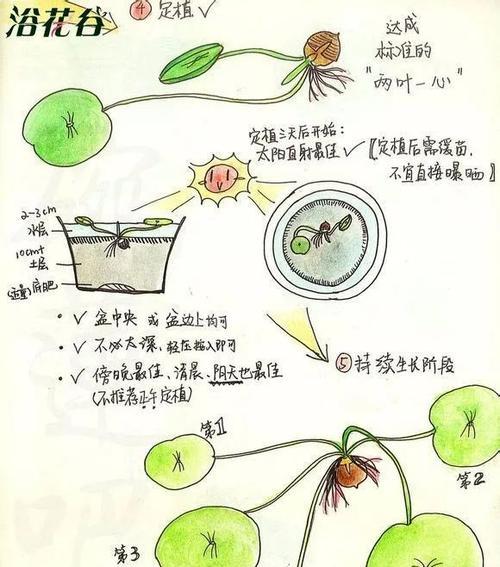 浴花谷
④定植✓
达成
标准的
"两叶一心"
定植三天后开始:
太阳直射最佳✓
【定植后需缓苗,
不宜直接曝晒】
2-3cm
水层
10cm+
土层
底肥
• ✓ 盆中央 或 盆边上均可
• ✓ 不必太深,轻压按入即可
• ✓ 傍晚最佳、清晨、阴天也最佳
(不推荐正午定植)
⑤持续生长阶段
第1
第2
第3